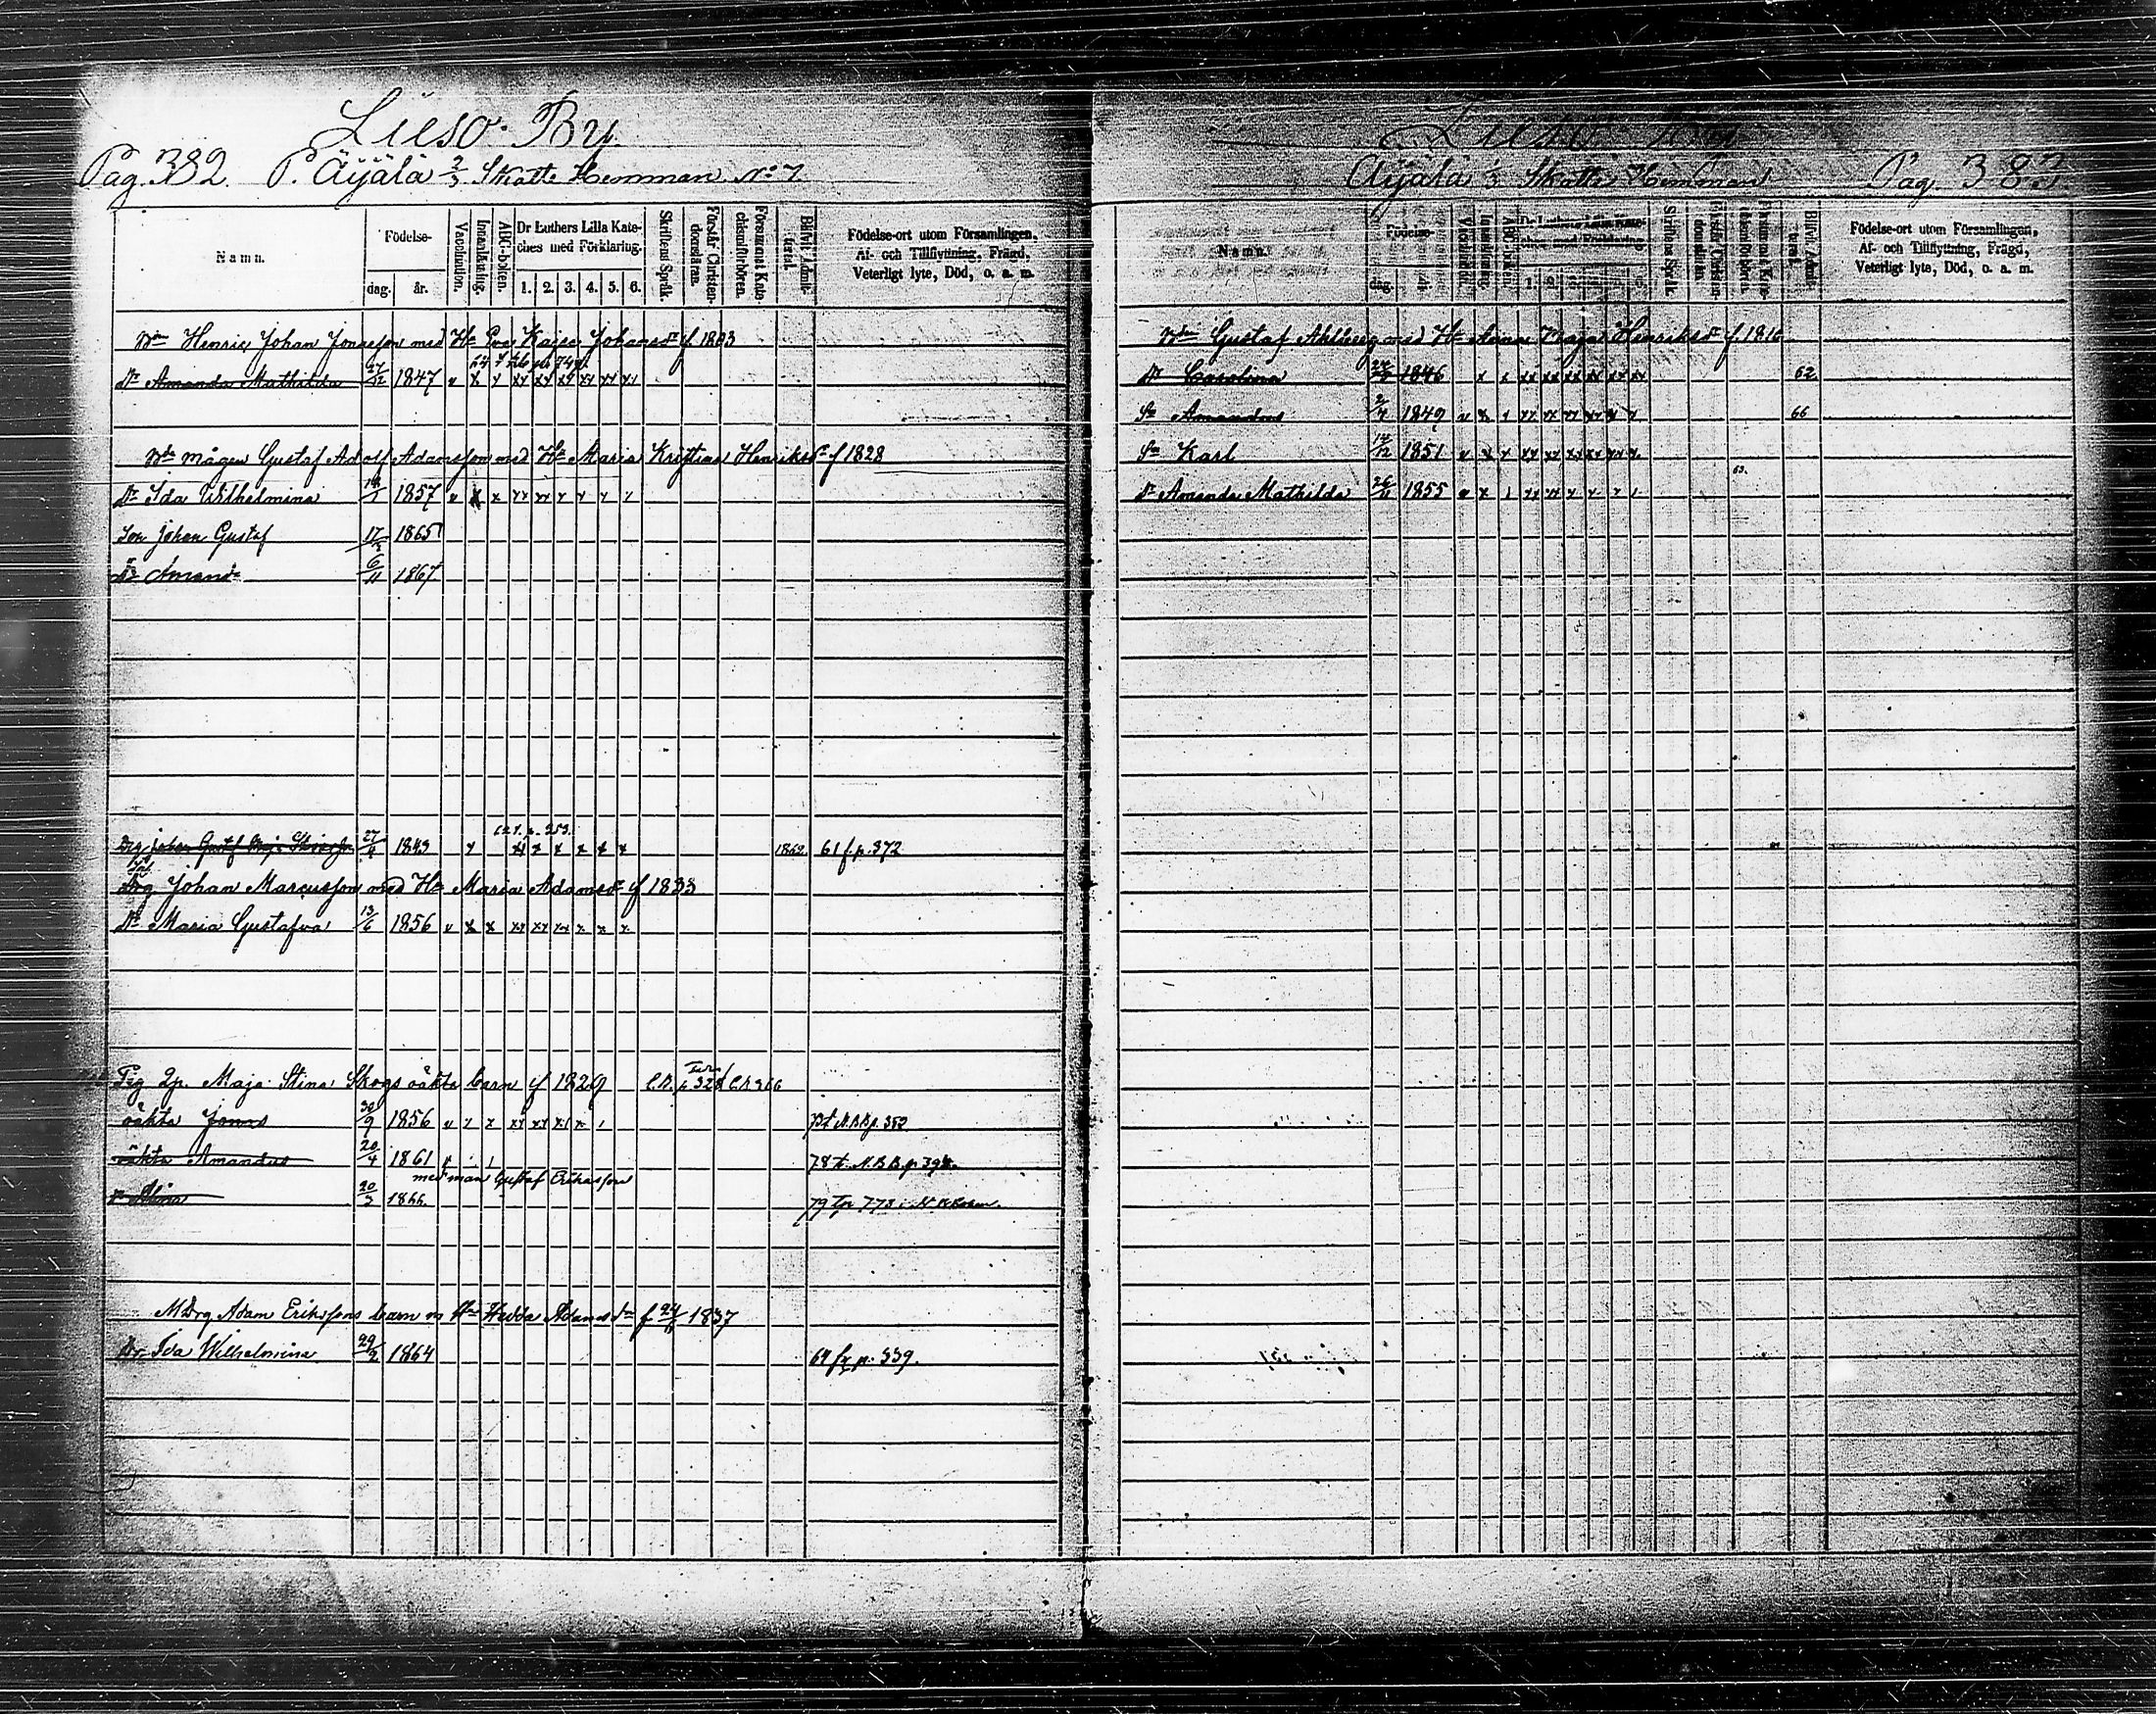 Lieso By.
Pag. 382. P. Äijälä 2/3 Skatte Hemman No 7
Namn. Födelse- dag. år. Vaccination. Innanläsning. ABC-boken. Dr Luthers Lilla Kateches med Förklaring. 1. 2. 3. 4. 5. 6. Skriftens Språk. Förstår Christendomsläran. Försummat Katechismiförhören. Blifvit Admitterad. Födelse-ort utom Församlingen, Af- och Tillflyttning, Frägd, Veterligt lyte, Död, o. a. m.
Bdn Henric Johan Jonasson med Hu Eva Kajsa Johansdr f 1803
Dr Amanda Mathilda 27/12 1847
Bdn mågen Gustaf Adolf Adamsson med Hu Maria Kristina Henriksdr f 1828
Dr Ida Wilhelmina 1857
Son Johan Gustaf 1865
Dr Amanda 6/11 1867
Drg Johan Gustaf 27/4 1843 1862 61 f. p. 372
Drg Johan Marcusson med Hu Maria Adamsdr f 1833
Dr Maria Gustafva 13/6 1856
Pig Maja Stina Skogs oäkta barn f 1829
oäkta Jonas 30/9 1856
oäkta Amandus 20/4 1861 78 t. N.B.B. p. 394.
med man Gustaf Eriksson
Alina 1866.
MDrg Adam Erikssons barn m Hu Hedda Adamsdr f 1837
Dr Ida Wilhelmina 29/2 1864 64 fr p. 339.
Lieso By
Äijälä 1/3 Skatte Hemman Pag. 383.
Namn. Födelse- dag. år. Vaccination. Innanläsning. ABC-boken. Dr Luthers Lilla Kateches med Förklaring. 1. 2. 3. 4. 5. 6. Skriftens Språk. Förstår Christendomsläran. Försummat Katechismiförhören. Blifvit Admitterad. Födelse-ort utom Församlingen, Af- och Tillflyttning, Frägd, Veterligt lyte, Död, o. a. m.
Bdn Gustaf Ahlberg med Hu Anna Maja Henriksdr f. 1816
Dr Carolina 1846 62
Sn Amandus 2/4 1849 66
Sn Karl 14/12 1851
63.
Dr Amanda Mathilda 26/11 1855